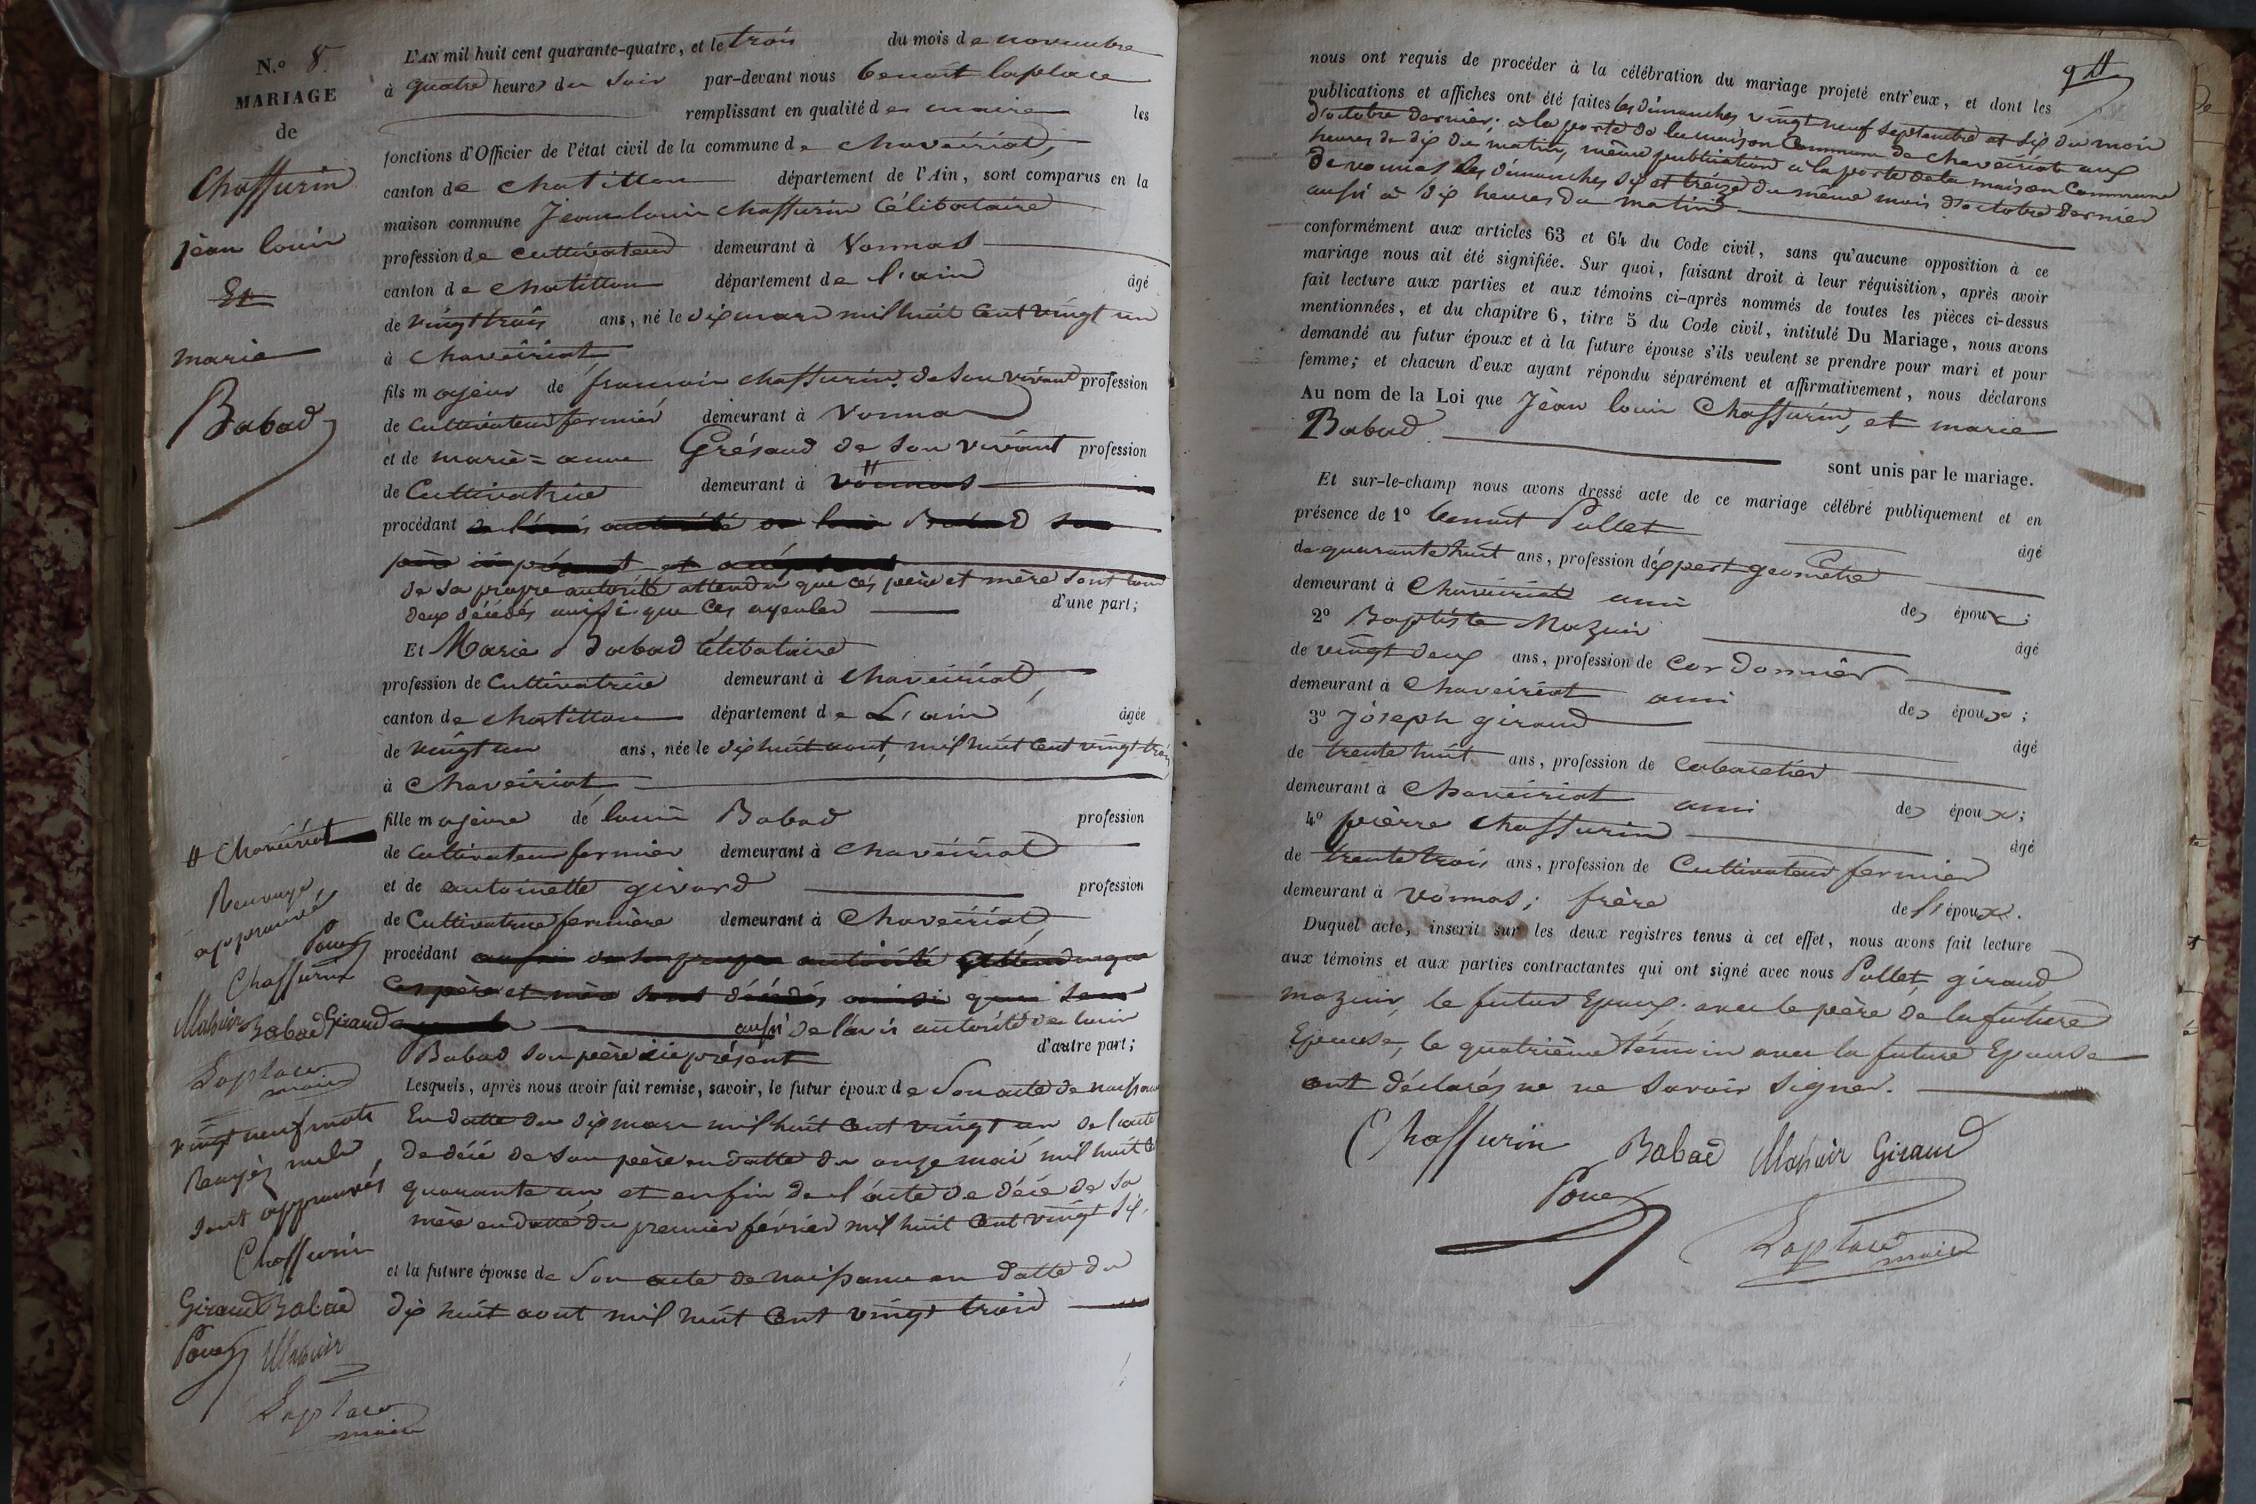 N.o 8.
MARIAGE
de
Chaffurin
jean louis
Et
marie
Babad
L'AN mil huit cent quarante-quatre, et le trois du mois de novembre
à quatre heures du soir par-devant nous benoit laplace
remplissant en qualité de maire les
fonctions d'Officier de l'état civil de la commune de chaveiriat,
canton de chatillon département de l'Ain, sont comparus en la
maison commune Jean louis chaffurin Célibataire
profession de cultivateur demeurant à Vonnas
canton de chatillon département de l'ain âgé
de vingt trois ans, né le dix mars mil huit Cent vingt un
à chaveiriat
fils majeur de francois chaffurin, de son vivant profession
de cultivateur fermier demeurant à Vonnas
et de marie=anne Grésaud de son vivant profession
de Cultivatrice demeurant à Vonnas #
procédant
de sa propre autorité attendu que ces père et mère sont tous
deux décédés ainsi que ces ayeules d'une part;
Et Marie Babad Célibataire
profession de Cultivatrice demeurant à Chaveiriat,
canton de chatillon département de L'ain âgée
de vingt un ans, née le dix huit aout, mil huit Cent vingt trois
à Chaveiriat
fille majeure de louis Babad profession
de cultivateur fermier demeurant à chaveiriat
et de antoinette girard profession
de Cultivatrice fermière demeurant à Chaveiriat,
procédant
aussi de l'avis autorité de louis
Babad son père ici présent d'autre part;
Lesquels, après nous avoir fait remise, savoir, le futur époux de Son acte de naissance
En datte du dix mars mil huit Cent vingt un de l'acte
de décé de son père en datte du onze mai mil huit C
quarante un et enfin de l'acte de décé de sa
mère en datte du premier février mil huit Cent vingt six.
et la future épouse de Son acte de naissance en datte du
dix huit aout mil huit Cent vingt trois
# Chaveiriat
Renvoye
approuvé
Chaffurin
Mazuir Babad Giraud
Laplace
maire
vingt neuf mots
Rayés nuls,
sont approuvés
Chaffurin
Giraud Babad
Mazuir
Laplace
maire
nous ont requis de procéder à la célébration du mariage projeté entr'eux, et dont les
publications et affiches ont été faites les dimanches vingt neuf septembre et six du mois
d'octobre dernier, à la porte de la maison Commune de chaveiriat aux
heures de dix du matin, même publication à la porte de la maison Commune
de vonnas les dimanches six et treize du même mois d'octobre dernier
aussi à dix heures du matin
conformément aux articles 63 et 64 du Code civil, sans qu'aucune opposition à ce
mariage nous ait été signifiée. Sur quoi, faisant droit à leur réquisition, après avoir
fait lecture aux parties et aux témoins ci-après nommés de toutes les pièces ci-dessus
mentionnées, et du chapitre 6, titre 5 du Code civil, intitulé Du Mariage, nous avons
demandé au futur époux et à la future épouse s'ils veulent se prendre pour mari et pour
femme; et chacun d'eux ayant répondu séparément et affirmativement, nous déclarons
Au nom de la Loi que Jean louis Chaffurin, et marie
Babad
sont unis par le mariage.
Et sur-le-champ nous avons dressé acte de ce mariage célébré publiquement et en
présence de 1° benoit Pollet âgé
de quarante huit ans, profession d'éxpert géomètre
demeurant à Chaveiriat ami des époux;
2° Baptiste Mazuir âgé
de vingt deux ans, profession de cordonnier
demeurant à Chaveiriat ami des époux;
3° Joseph giraud âgé
de trente huit ans, profession de cabaretier
demeurant à Chaveiriat ami des époux;
4° pierre chaffurin âgé
de trente trois ans, profession de Cultivateur fermier
demeurant à vonnas; frère de l'époux.
Duquel acte, inscrit sur les deux registres tenus à cet effet, nous avons fait lecture
aux témoins et aux parties contractantes qui ont signé avec nous Pollet, giraud
mazuir, le futur Epoux. avec le père de la future
Epouse, le quatrième témoin avec la future Epouse
ont déclarés ne ne savoir signer.
Chaffurin Babad Mazuir Giraud
Laplace
maire